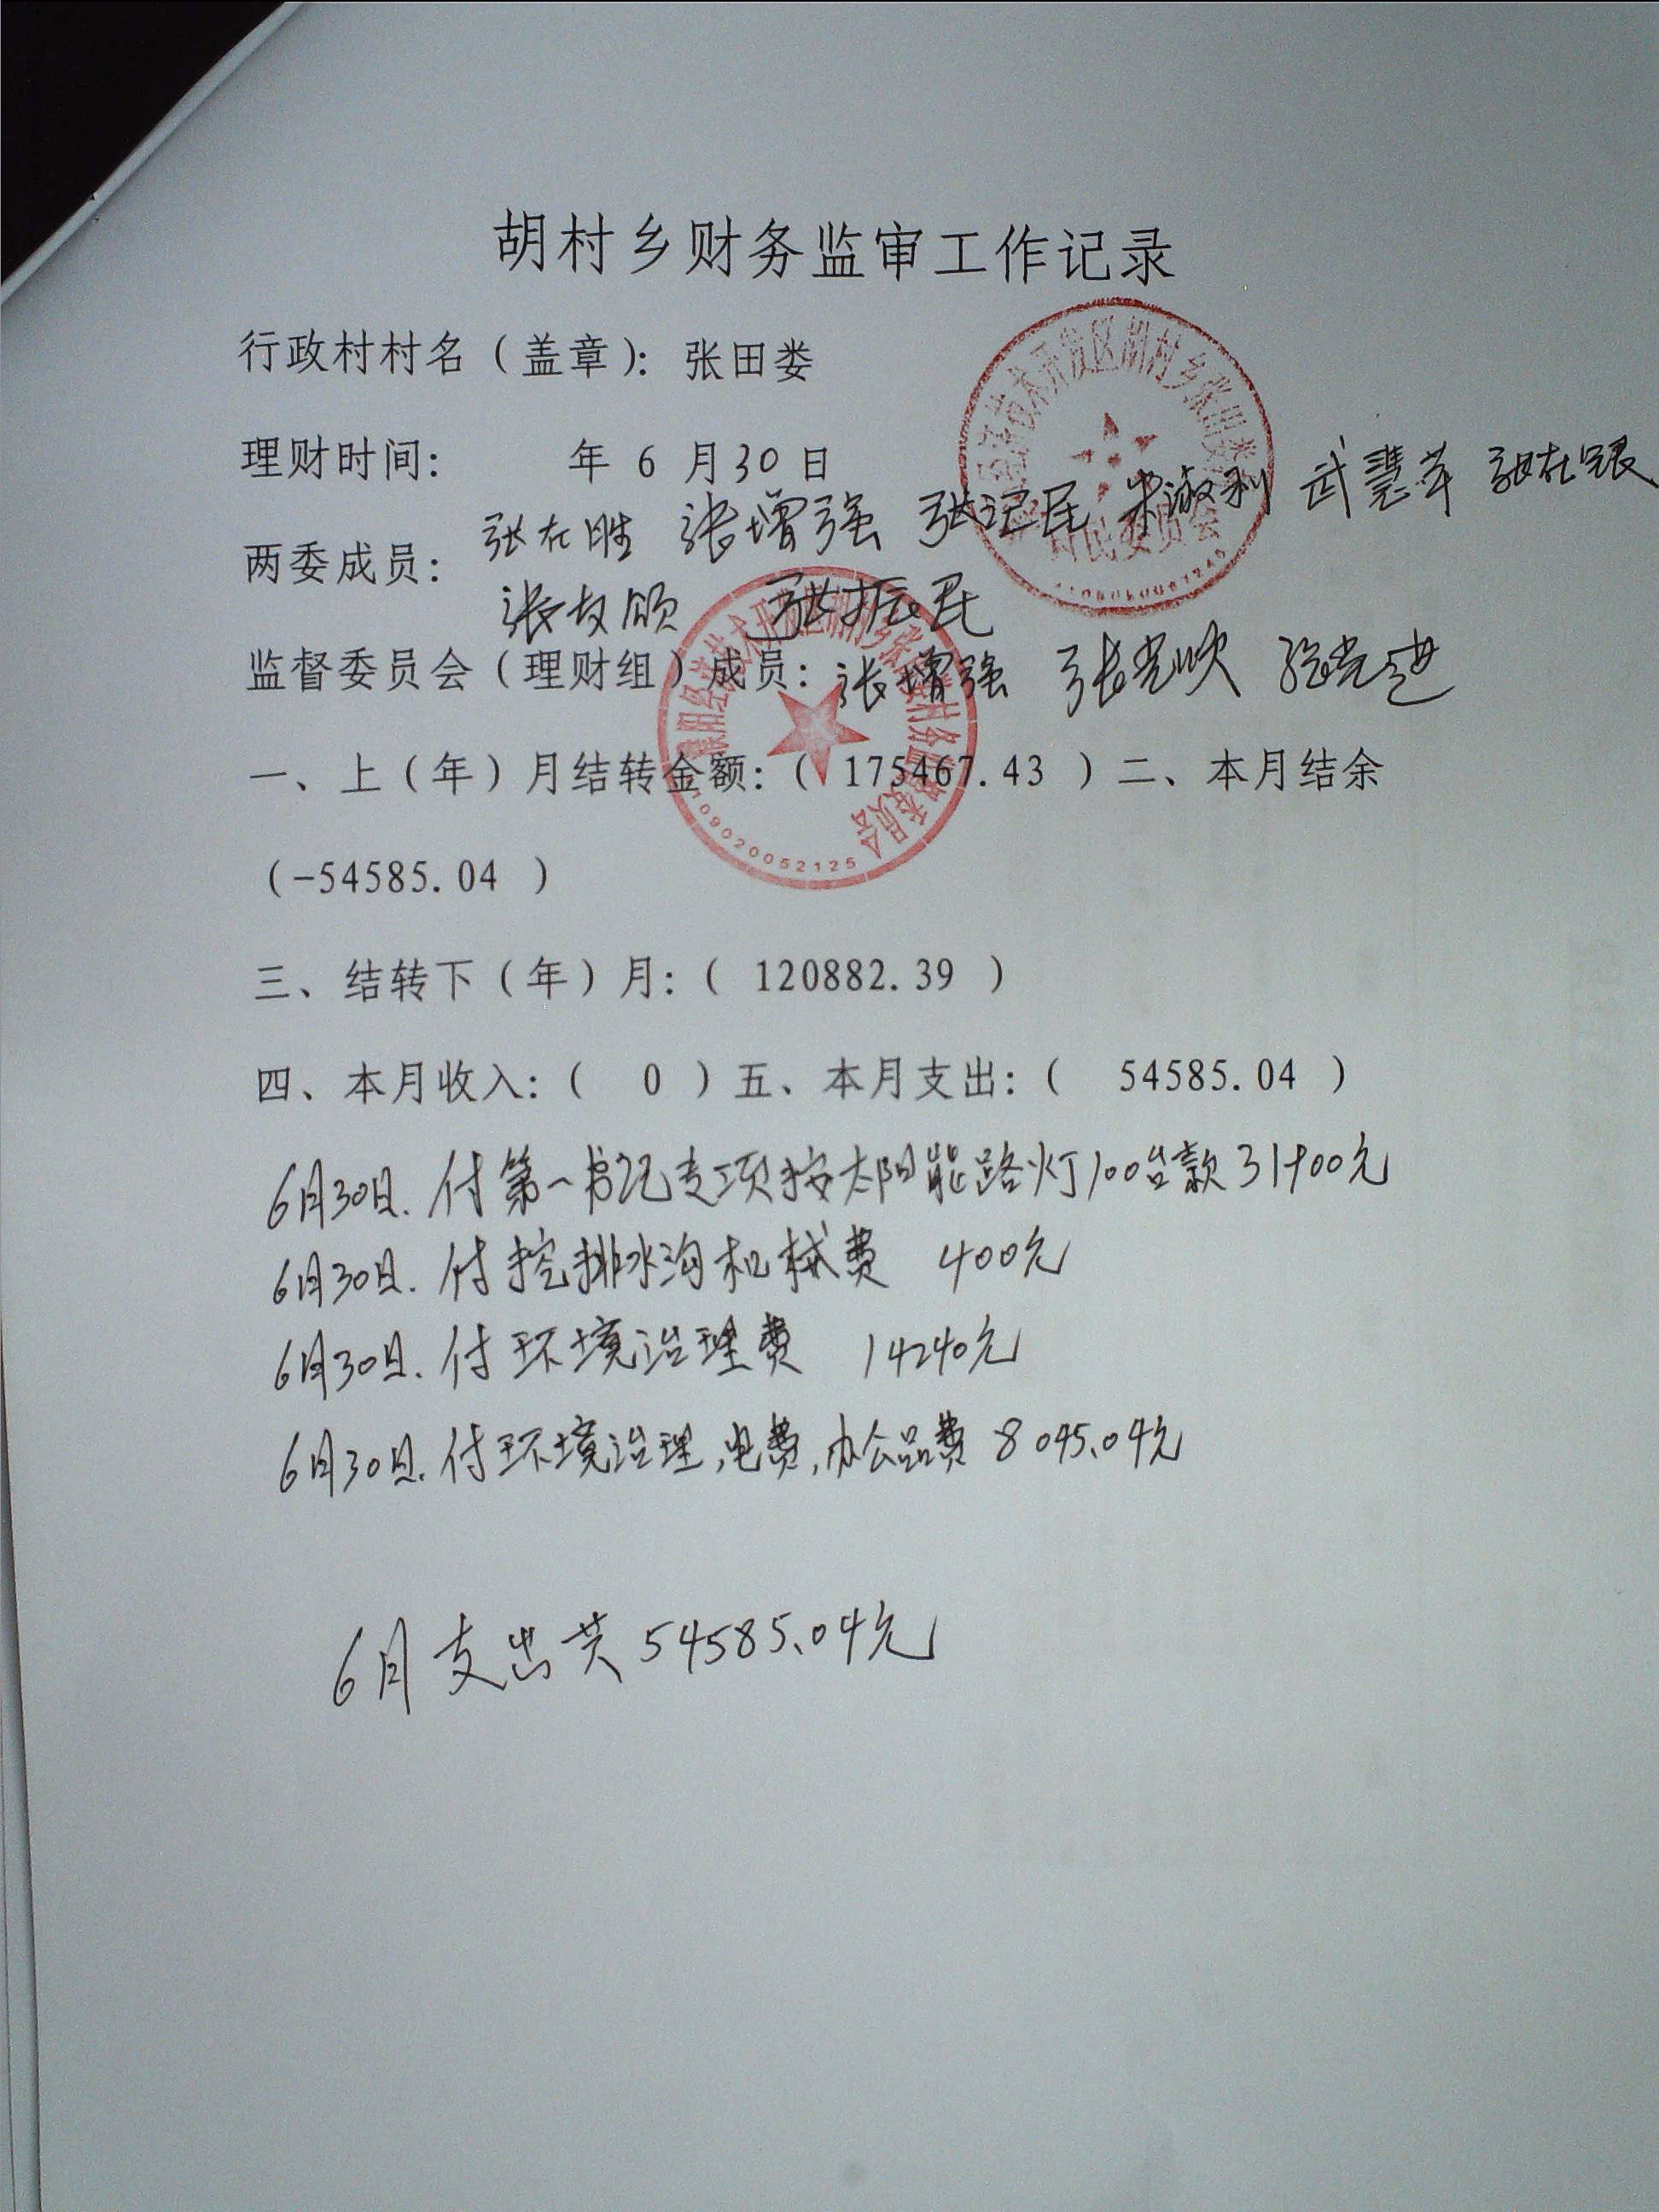 胡村乡财务监审工作记录
行政村村名（盖章）：张田娄
理财时间： 年 6 月30日
张在胜 张增强 张记民 武慧苹 张在银
两委成员：
张振民
监督委员会（理财组）成员：张增强
一、上（年）月结转金额：（ 175467.43 ）二、本月结余
（-54585.04 ）
三、结转下（年）月：（ 120882.39 ）
四、本月收入：（ 0 ）五、本月支出：（ 54585.04 ）
6月30日.付第一书记专项按太阳能路灯100台款31900元
6月30日.付挖排水沟机械费 400元
6月30日.付环境治理费 14240元
6月30日.付环境治理,电费,办公品费 8045.04元
6月支出共54585.04元